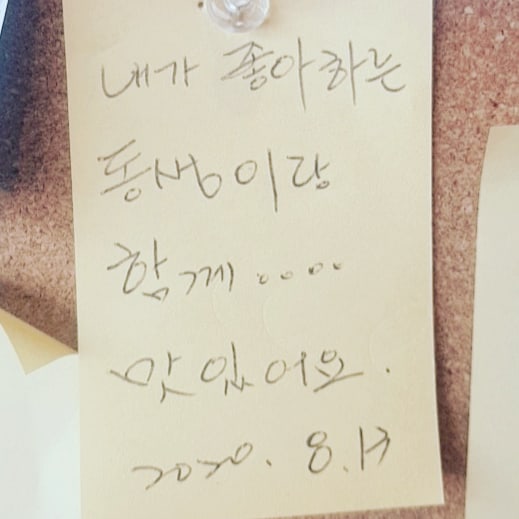 내가 좋아하는
동생이랑
함께....
맛있어요.
2020. 8.13